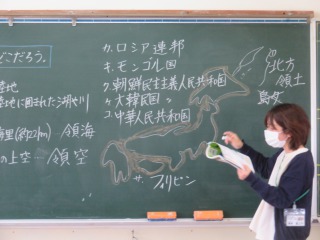 どこだろう。
カ.ロシア連邦
キ.モンゴル国
ク.朝鮮民主主義人民共和国
ケ.大韓民国
コ.中華人民共和国
サ.フィリピン
北方
領土
島
陸地
陸地に囲まれた湖や川
海里(約22km) 領海
の上空―領空